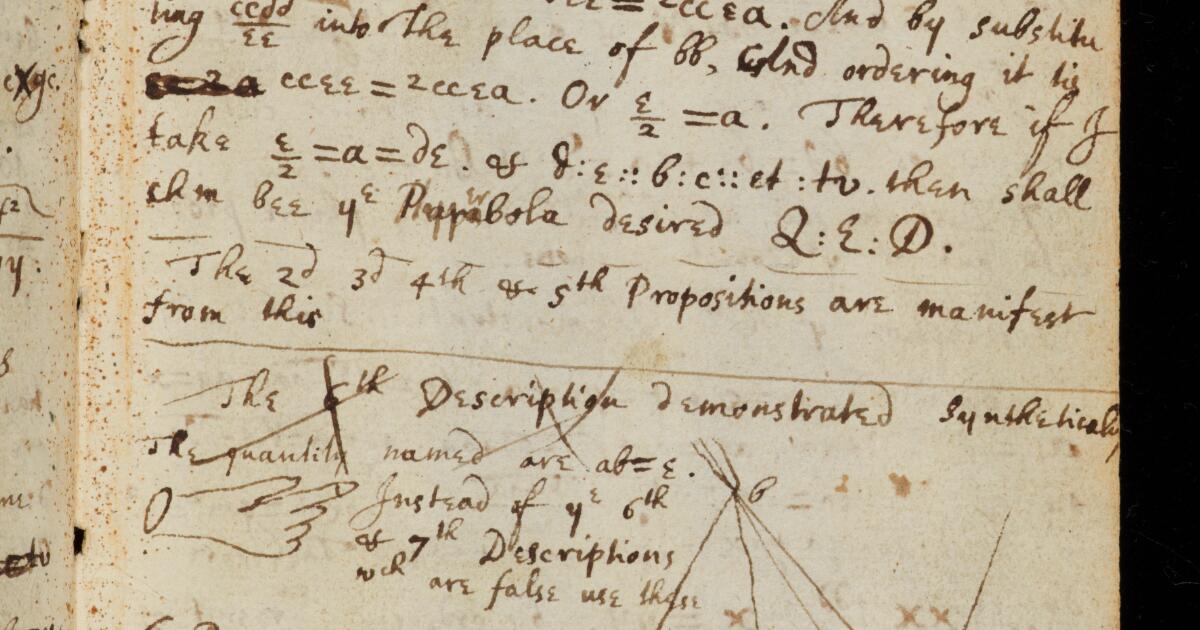 =2ccea. And by substitu
ting ccdd/ee into the place of bb, And ordering it tis
ccee=2ccea. Or e/2 =a. Therefore if I
take e/2 =a=de. & d:e::b:c::et:tv. then shall
chm bee ye Parabola desired Q:E:D.
The 2d 3d 4th & 5th Propositions are manifest
from this
The 6th Description demonstrated Synthetically
The quantity named are ab=e.
b
Instead of ye 6th
& 7th Descriptions
wch are false use these